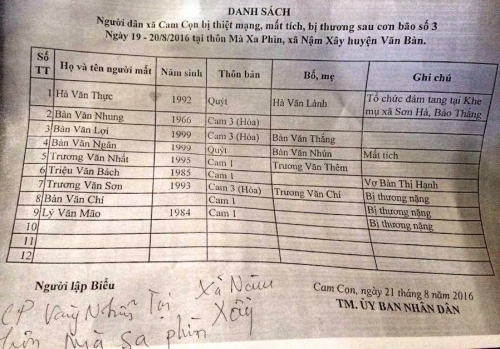 DANH SÁCH
Người dân xã Cam Cọn bị thiệt mạng, mất tích, bị thương sau cơn bão số 3
Ngày 19 - 20/8/2016 tại thôn Mà Xa Phìn, xã Nậm Xây huyện Văn Bàn.
Số TT Họ và tên người mất Năm sinh Thôn bản Bố, mẹ Ghi chú
1 Hà Văn Thực 1992 Quýt Hà Văn Lành Tổ chức đám tang tại Khe mụ xã Sơn Hà, Bảo Thắng
2 Bàn Văn Nhung 1966 Cam 3 (Hòa)
3 Bàn Văn Lợi 1999 Cam 3 (Hòa) Bàn Văn Thắng
4 Bàn Văn Ngân 1999 Quýt Bàn Văn Nhún Mất tích
5 Trương Văn Nhất 1995 Cam 1 Trương Văn Thêm
6 Triệu Văn Bách 1985 Cam 1 Vợ Bàn Thị Hạnh
7 Trương Văn Sơn 1993 Cam 3 (Hòa) Trương Văn Chí Bị thương nặng
8 Bàn Văn Chí Cam 1 Bị thương nặng
9 Lý Văn Mão 1984 Cam 1 Bị thương nặng
10
11
12
Người lập Biểu
Cam Con, ngày 21 tháng 8 năm 2016
TM. ỦY BAN NHÂN DÂN
CP Vàng Nhân Tại Xã Nậm Xây
Mà Sa phìn